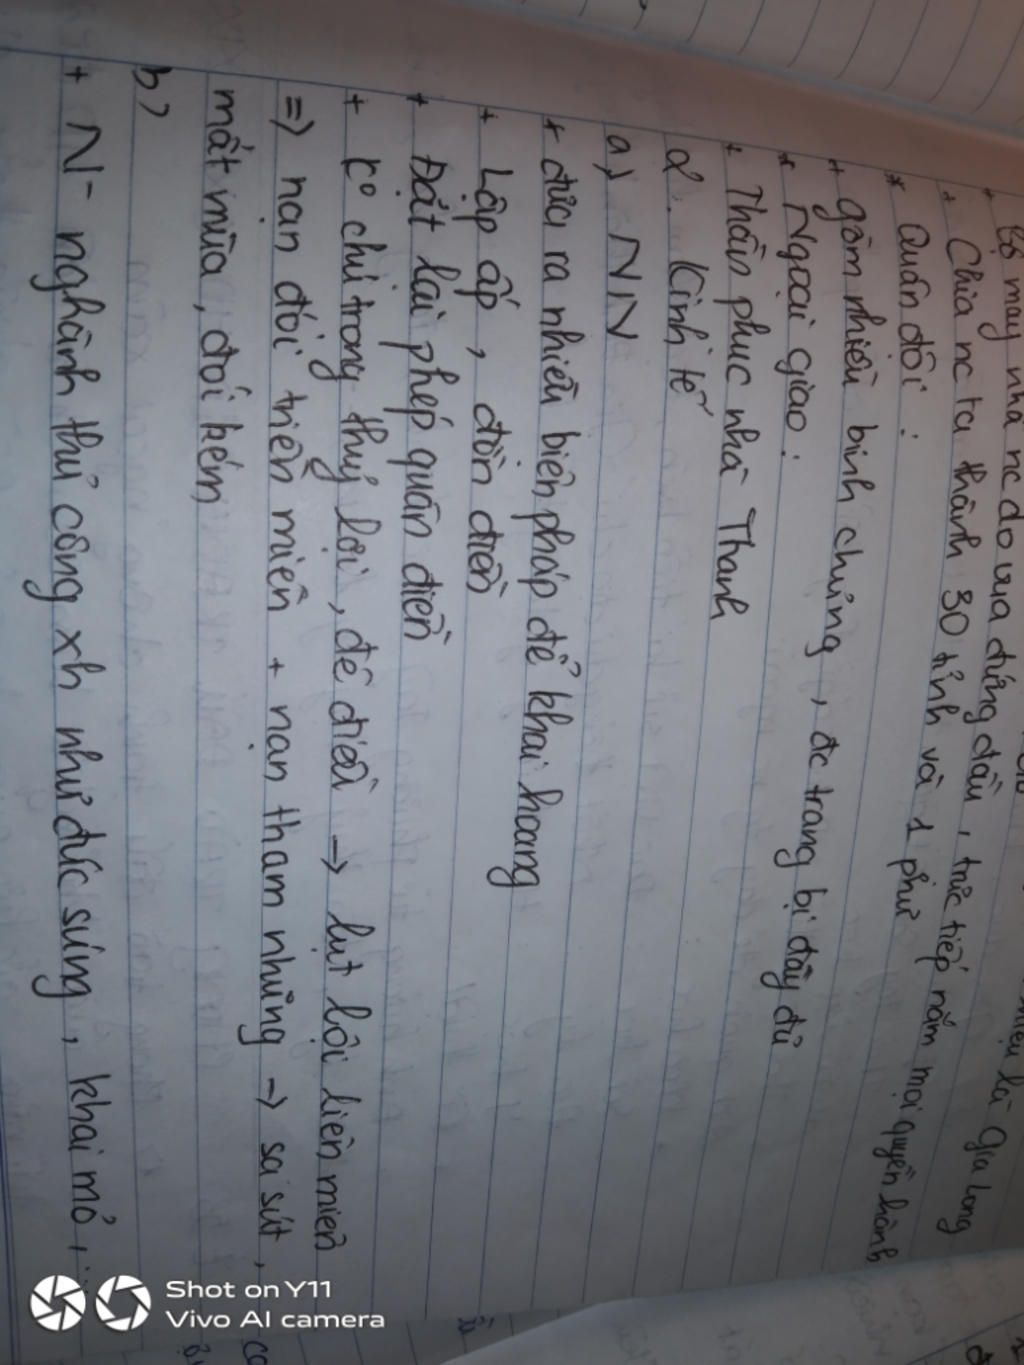 hiệu là Gia Long
+ Bộ máy nhà nc do vua đứng đầu, trực tiếp nắm mọi quyền hành
+ Chia nc ta thành 30 tỉnh và 1 phủ
* Quân đội:
+ gồm nhiều binh chủng, đc trang bị đầy đủ
* Ngoại giao:
+ Thần phục nhà Thanh
2. Kinh tế
a) NN
+ đưa ra nhiều biện pháp để khai hoang
+ Lập ấp, đồn điền
+ Đặt lại phép quân điền
+ K° chú trọng thuỷ lợi, đê điều → lụt lội liên miên
=> nạn đói triền miên + nạn tham nhũng → sa sút,
mất mùa, đói kém
b)
+ N- nghành thủ công xh như đúc súng, khai mỏ, ...
Shot on Y11
Vivo AI camera